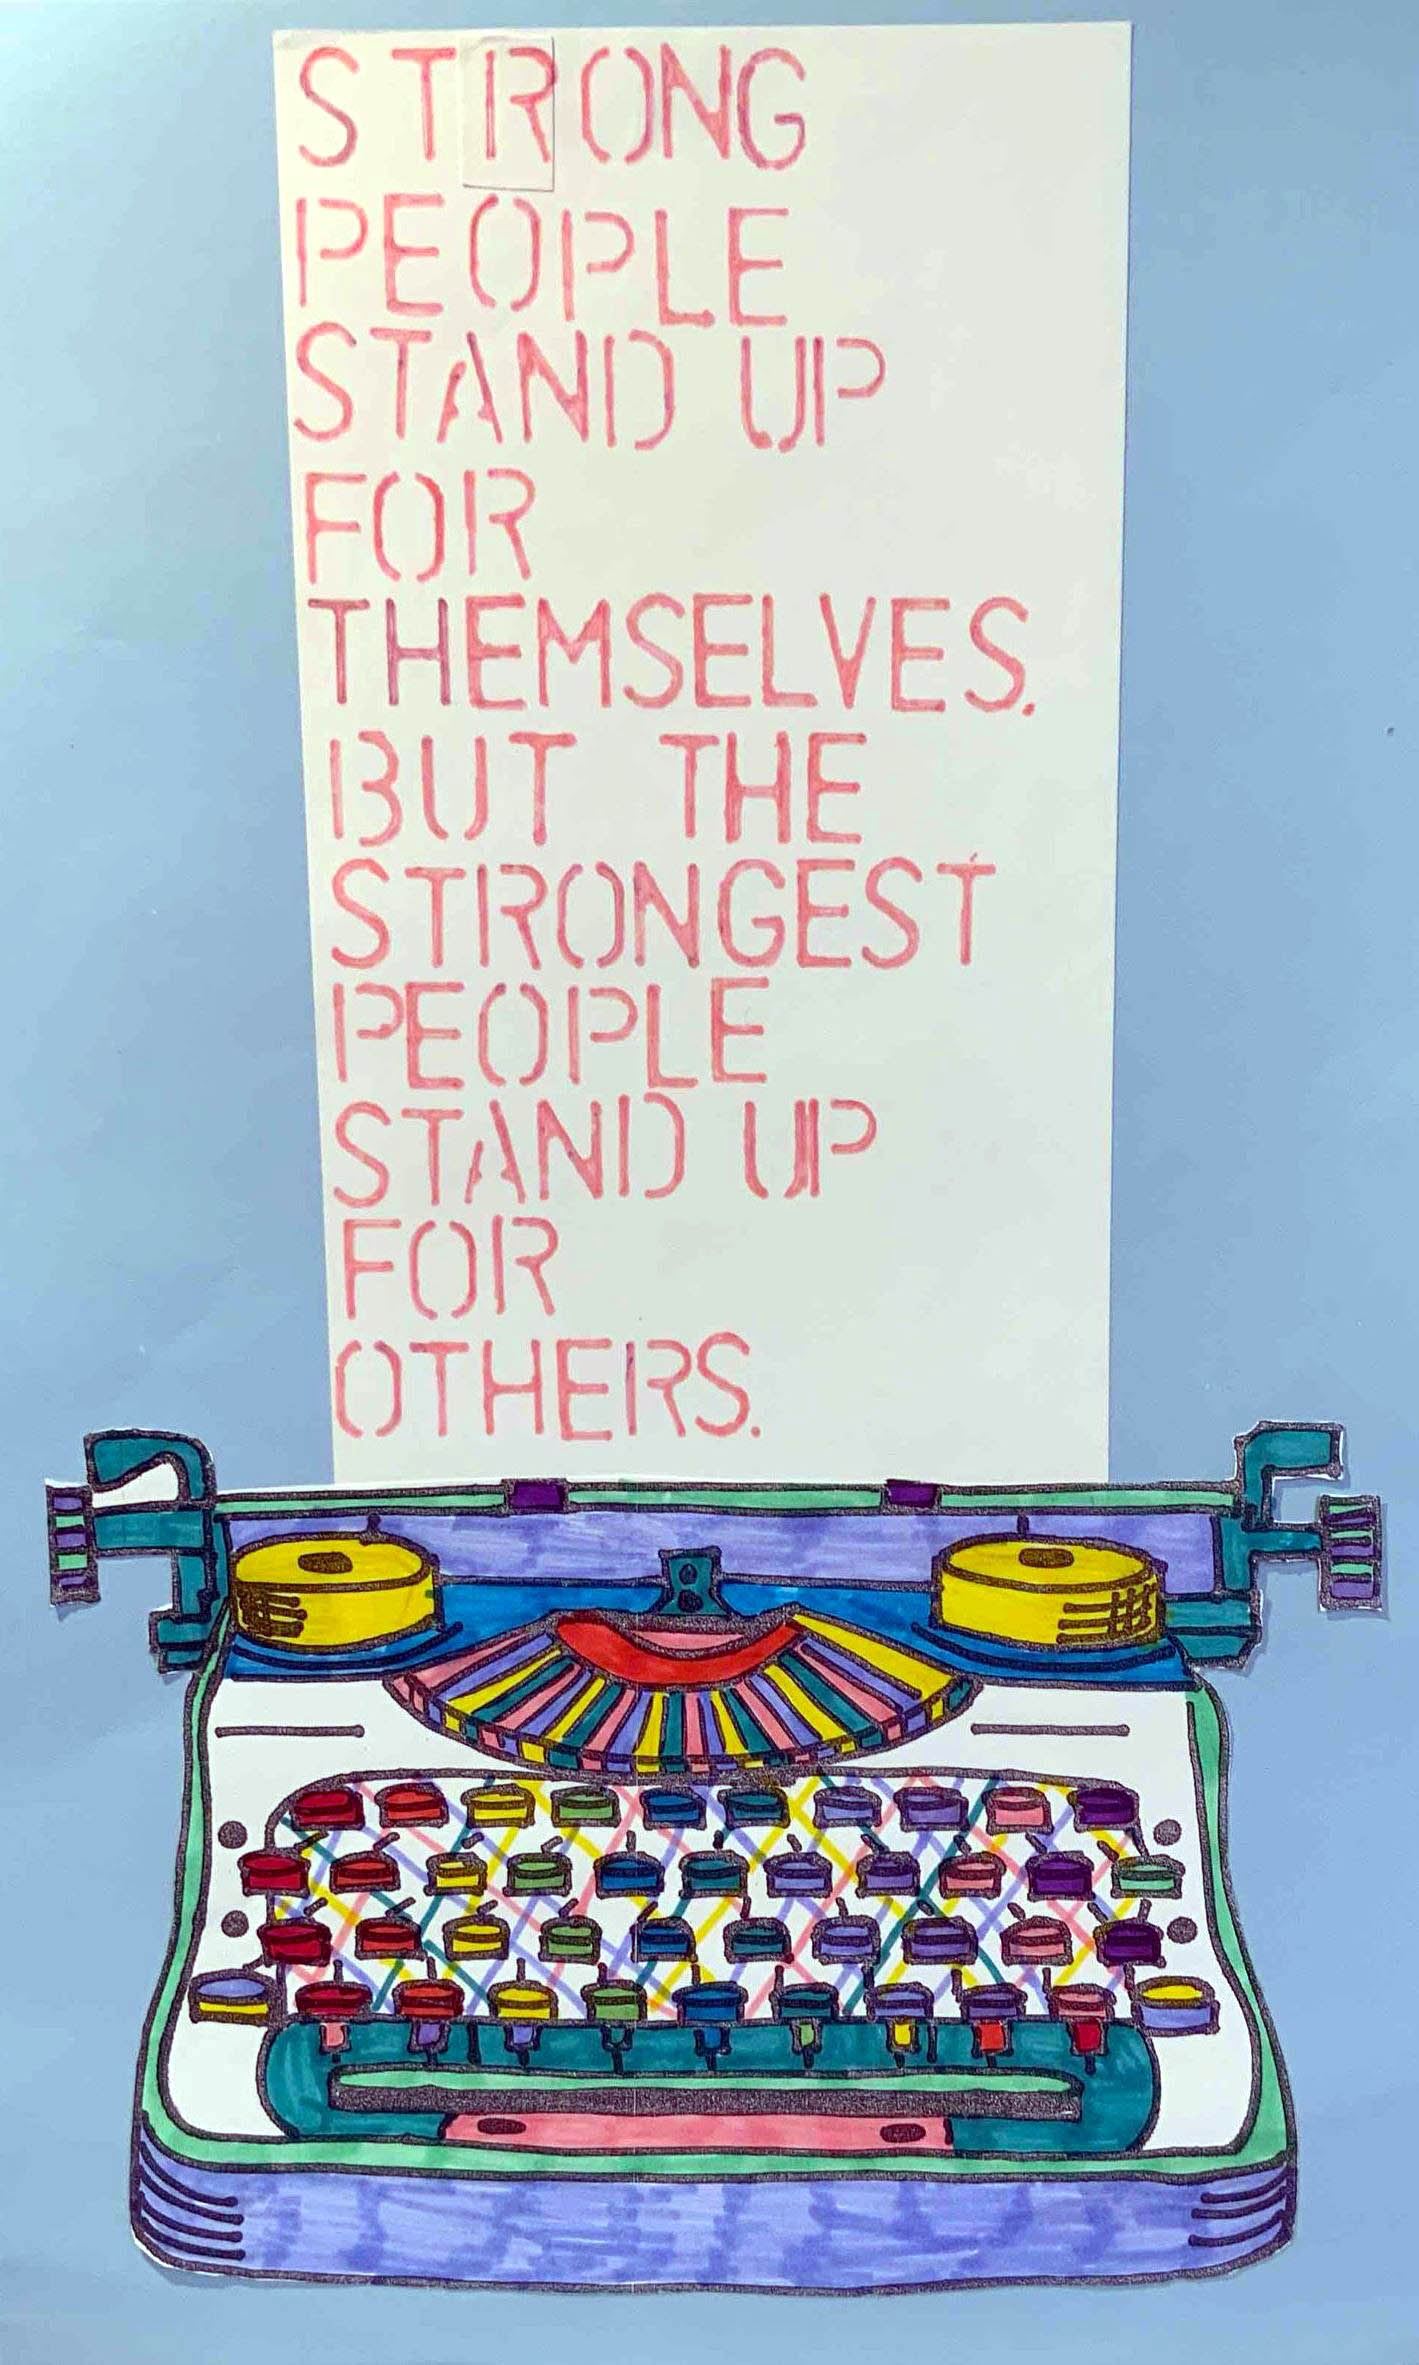 STRONG
PEOPLE
STAND UP
FOR
THEMSELVES.
BUT THE
STRONGEST
PEOPLE
STAND UP
FOR
OTHERS.